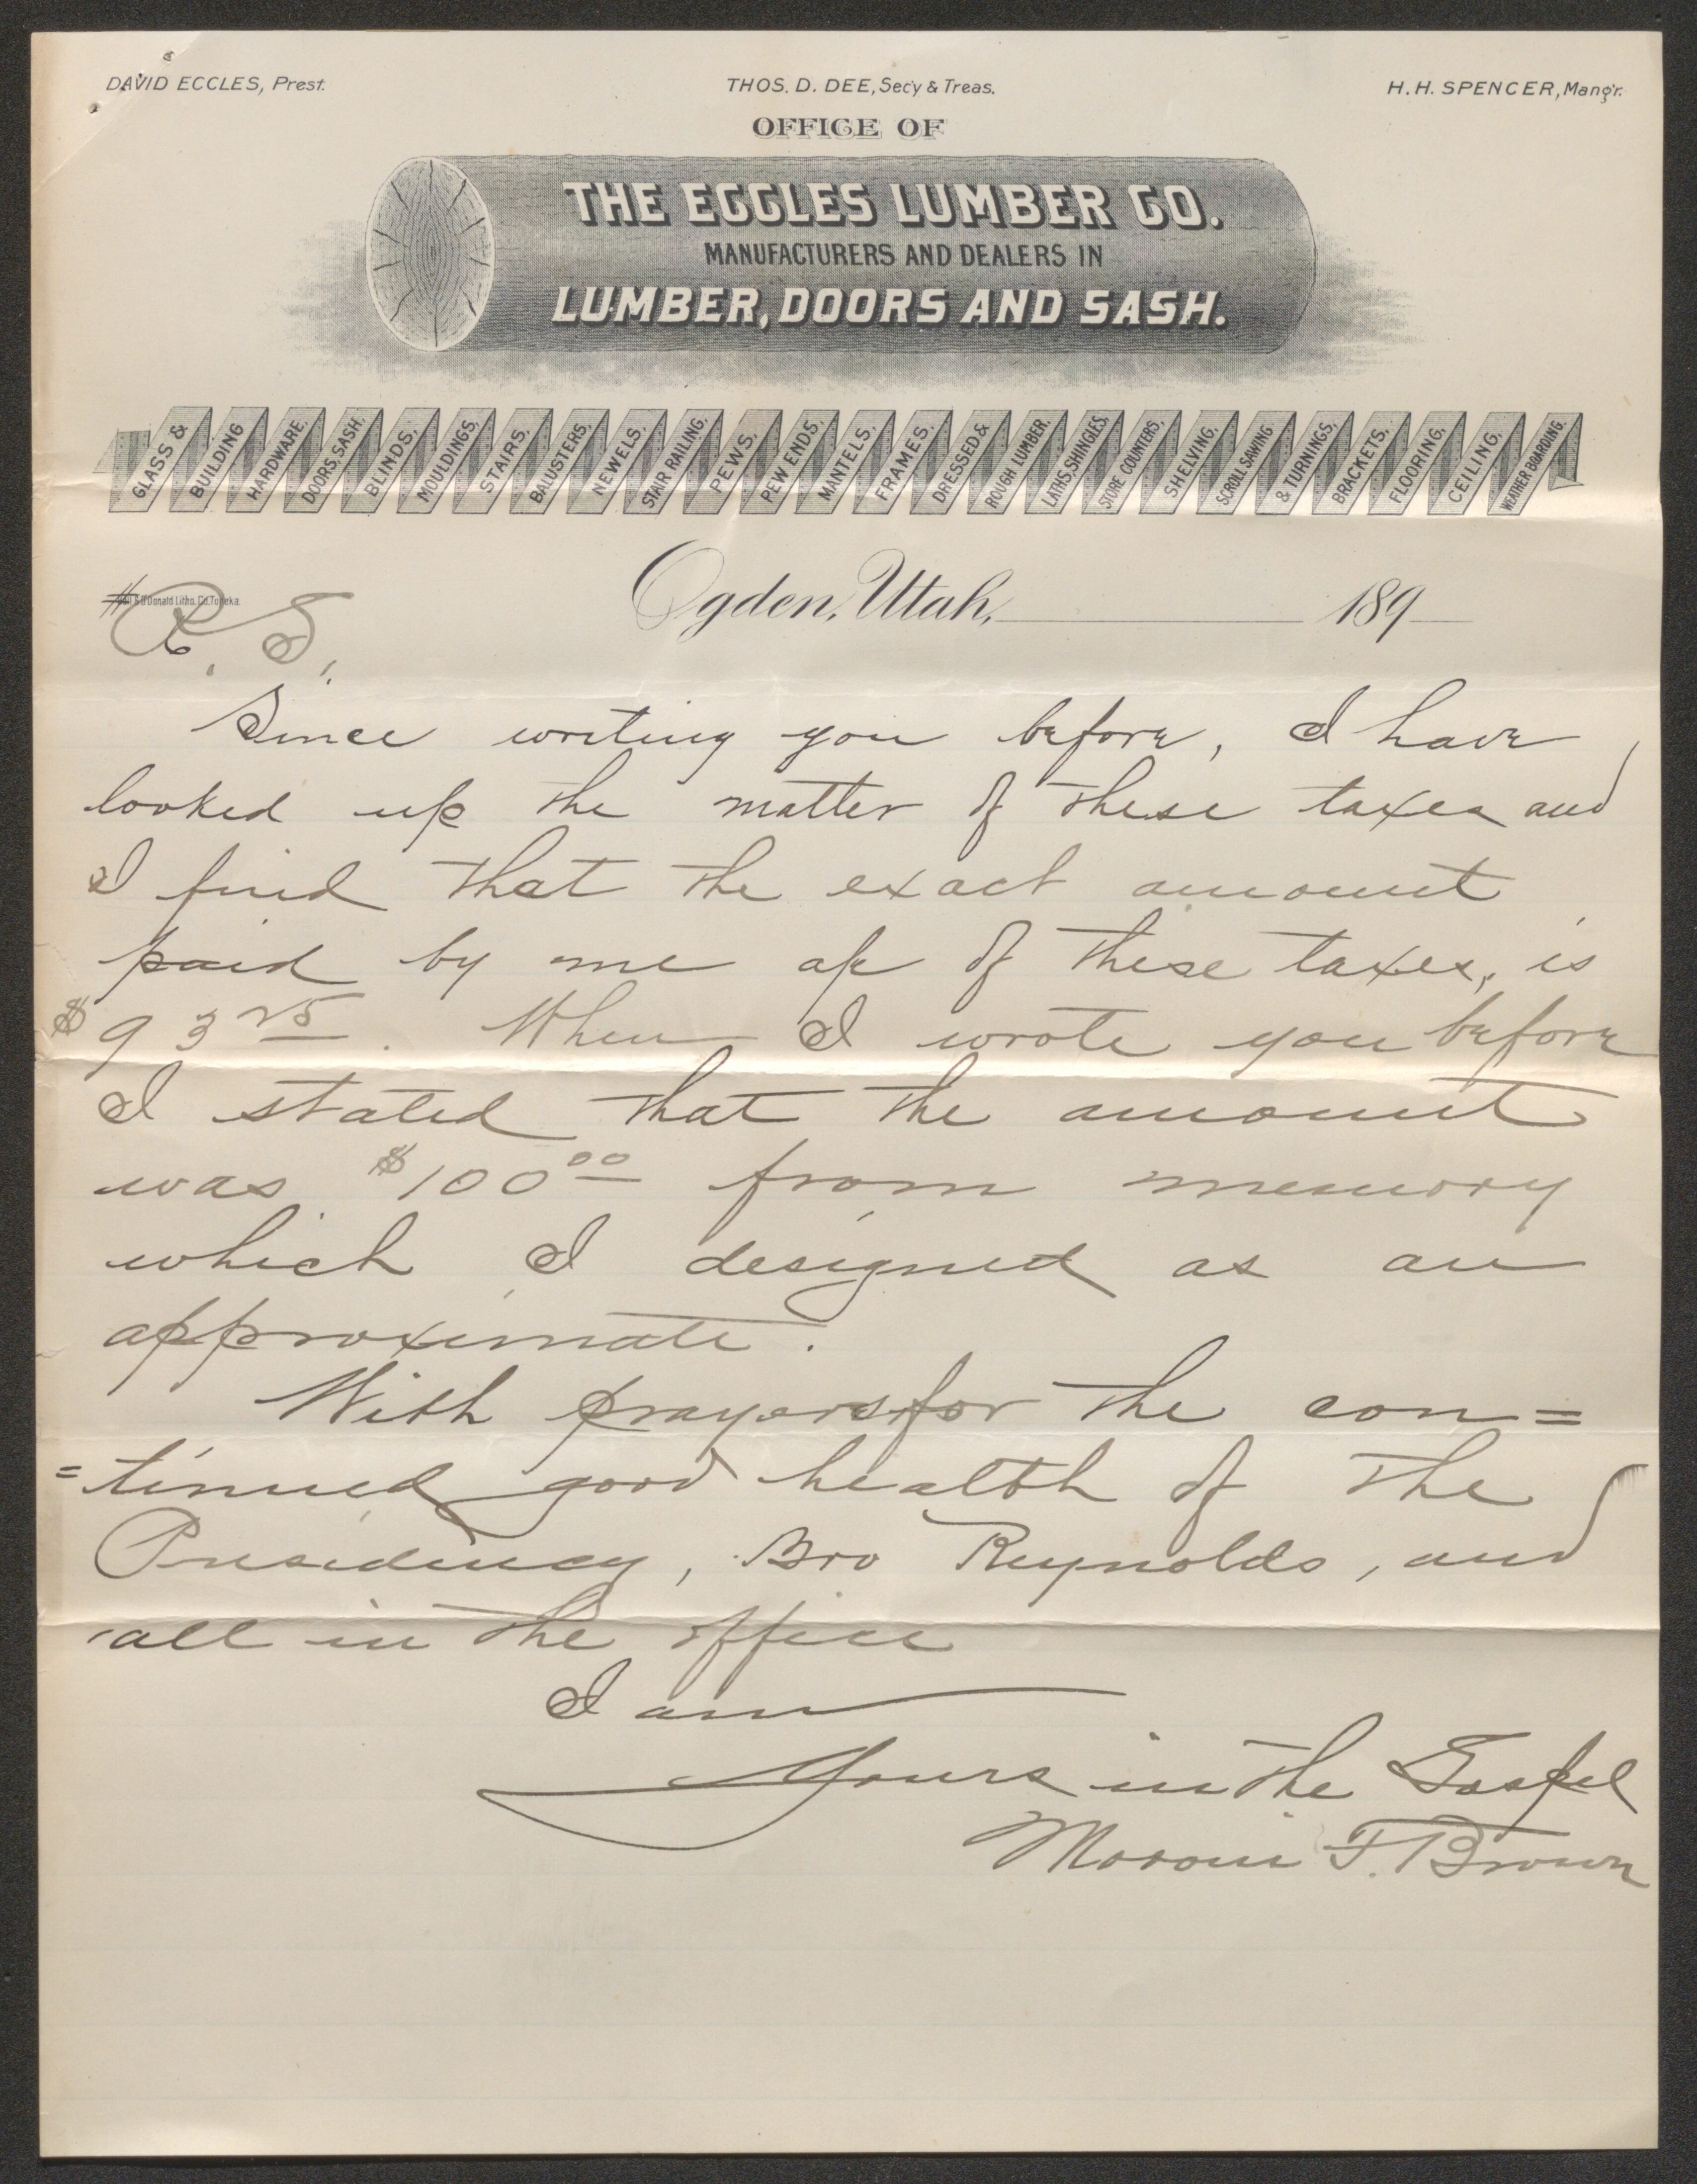 DAVID ECCLES, Prest.
THOS. D. DEE, Sec'y & Treas.
H. H. SPENCER, Mang'r.
OFFICE OF
THE ECCLES LUMBER CO.
MANUFACTURERS AND DEALERS IN
LUMBER, DOORS AND SASH.
GLASS & BUILDING HARDWARE, DOORS, SASH, BLINDS, MOULDINGS, STAIRS, BALUSTERS, NEWELS, STAIR RAILING, PEWS, PEW ENDS, MANTELS, FRAMES, DRESSED & ROUGH LUMBER, LATHS, SHINGLES, STORE COUNTERS, SHELVING, SCROLL SAWING & TURNINGS, BRACKETS, FLOORING, CEILING, WEATHER BOARDING.
Donald Litho. Co. Topeka.
Ogden, Utah, 189
P. S.
Since writing you before, I have
looked up the matter of these taxes and
I find that the exact amount
paid by me of these taxes, is
$93 25. When I wrote you before
I stated that the amount
was $100 00 from memory
which I designed as an
approximate.
With prayers for the con=
=tinued good health of the
Presidency, Bro Reynolds, and
all in the office
I am
Yours in the Gospel
Moroni F. Brown